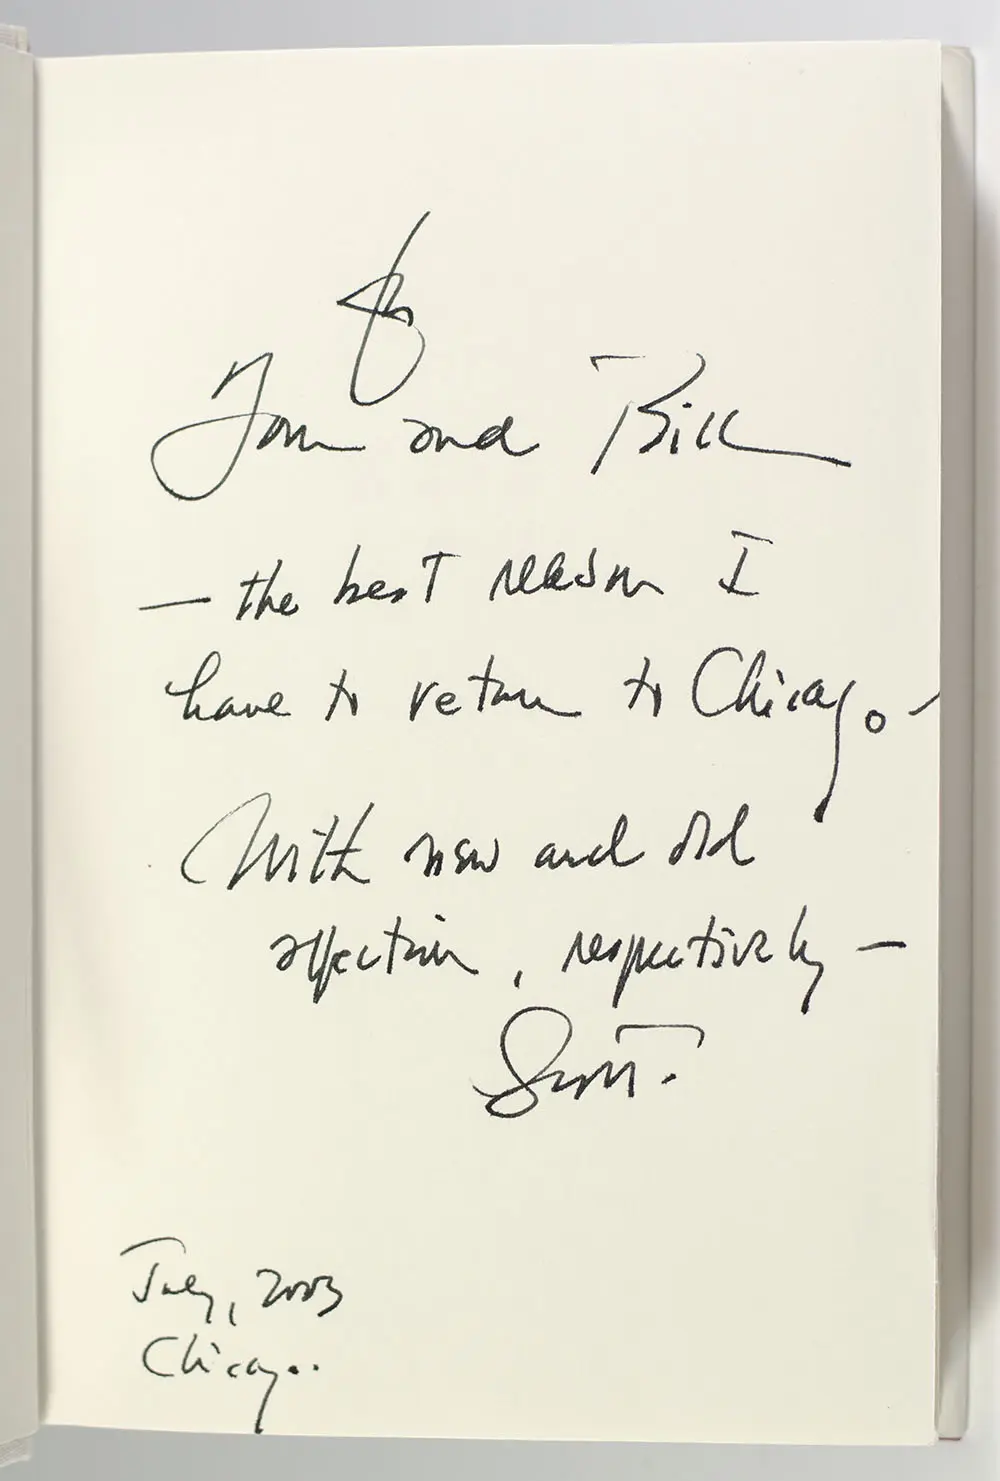 for
Tom and Bill
— the best reason I
have to return to Chicago —
With new and old
affection, respectively —
Scott.
July, 2003
Chicago.